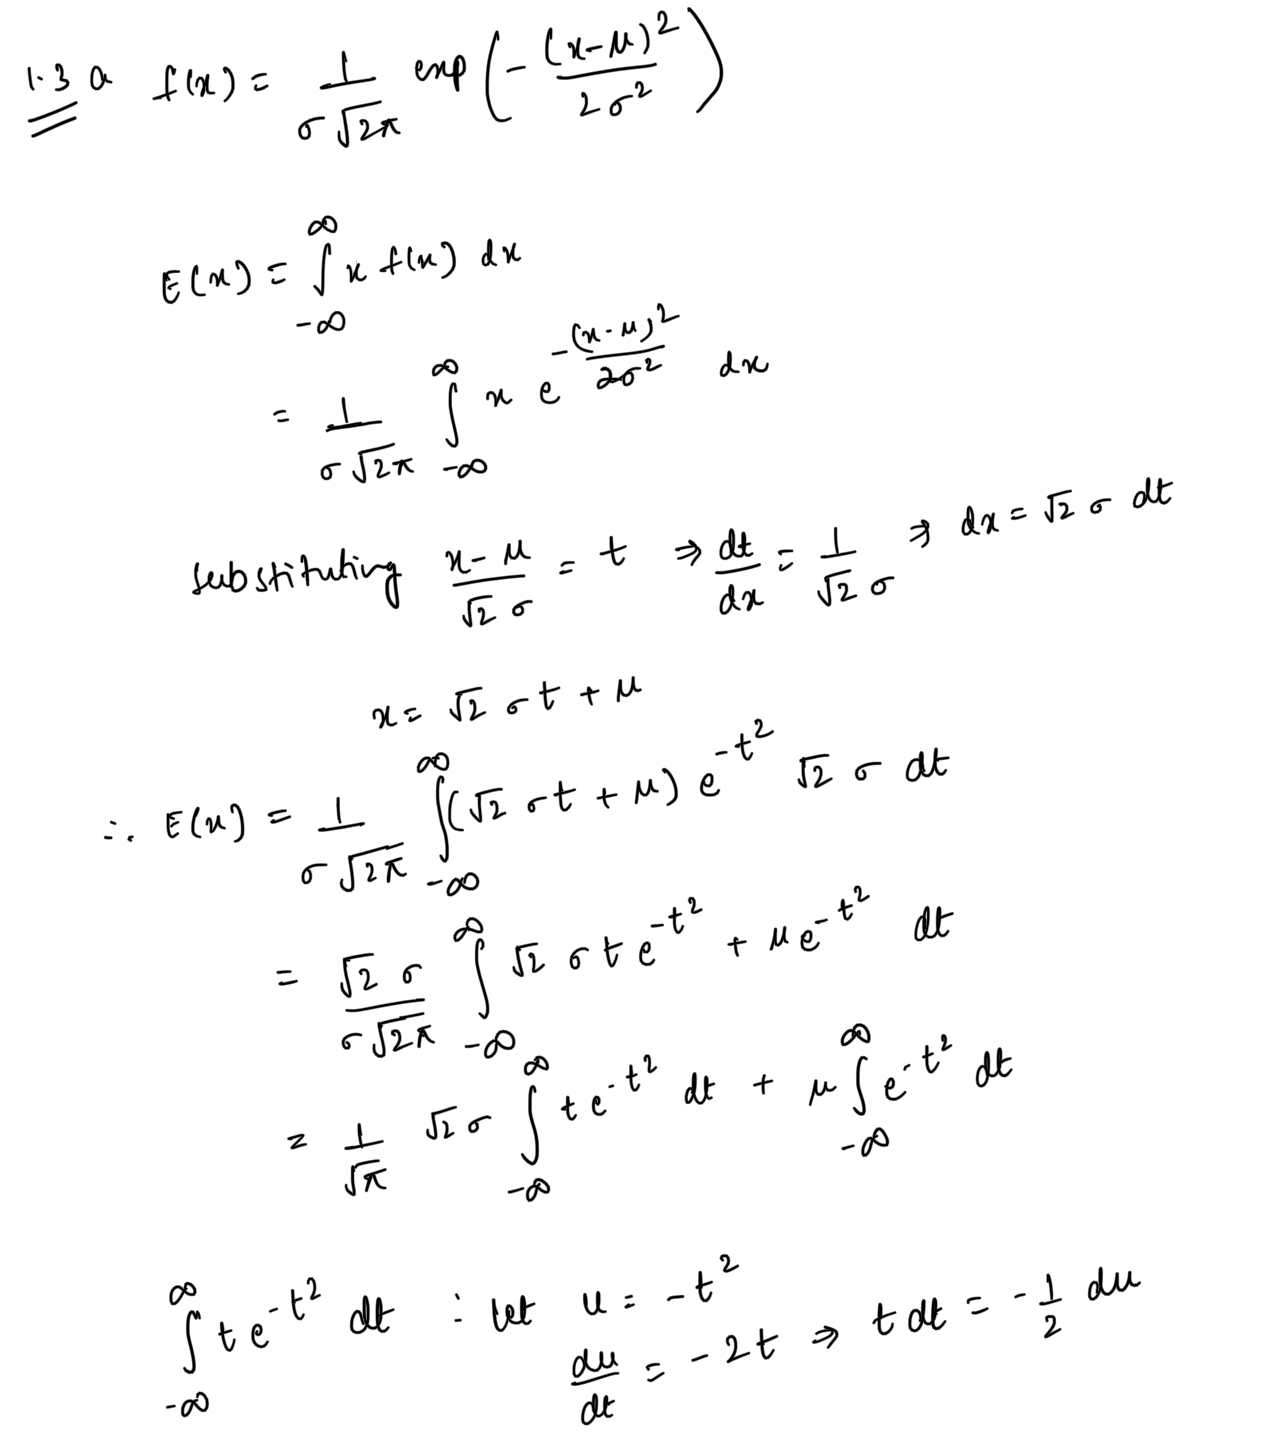 1.3 a f(x) = 1/(σ√2π) exp(-(x-μ)²/2σ²)
E(x) = ∫_{-∞}^{∞} x f(x) dx
= 1/(σ√2π) ∫_{-∞}^{∞} x e^{-(x-μ)²/2σ²} dx
substituting (x-μ)/(√2 σ) = t ⇒ dt/dx = 1/(√2 σ) ⇒ dx = √2 σ dt
x = √2 σt + μ
∴ E(x) = 1/(σ√2π) ∫_{-∞}^{∞} (√2 σt + μ) e^{-t²} √2 σ dt
= √2 σ/(σ√2π) ∫_{-∞}^{∞} √2 σ t e^{-t²} + μe^{-t²} dt
= 1/√π √2 σ ∫_{-∞}^{∞} t e^{-t²} dt + μ ∫_{-∞}^{∞} e^{-t²} dt
∫_{-∞}^{∞} t e^{-t²} dt : let u = -t²
du/dt = -2t ⇒ t dt = -1/2 du